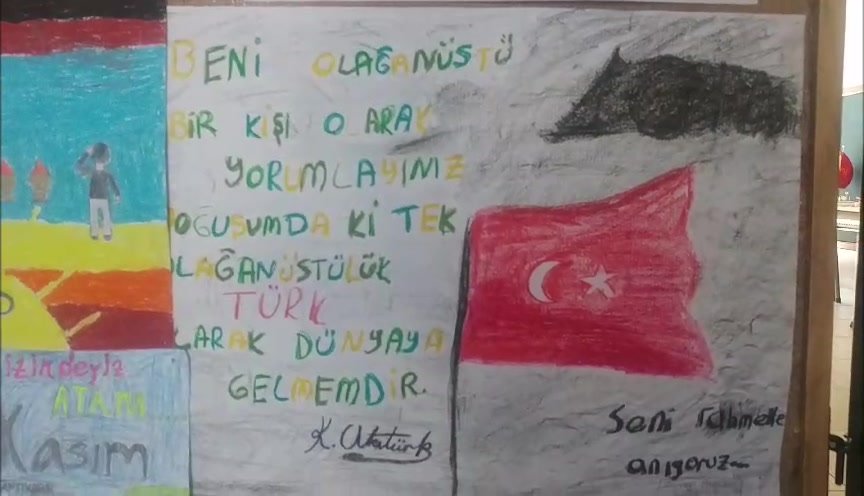 BENİ OLAĞANÜSTÜ
BİR KİŞİ O ARAK
YORUMLAYIMIZ
OĞUŞUMDA Kİ TEK
LAĞANÜSTÜLÜK
TÜRK
LARAK DÜNYAYA
GELMEMDİR.
K. Atatürk
Seni rahmetle
anıyoruz...
izindeyiz
ATAM
Kasım